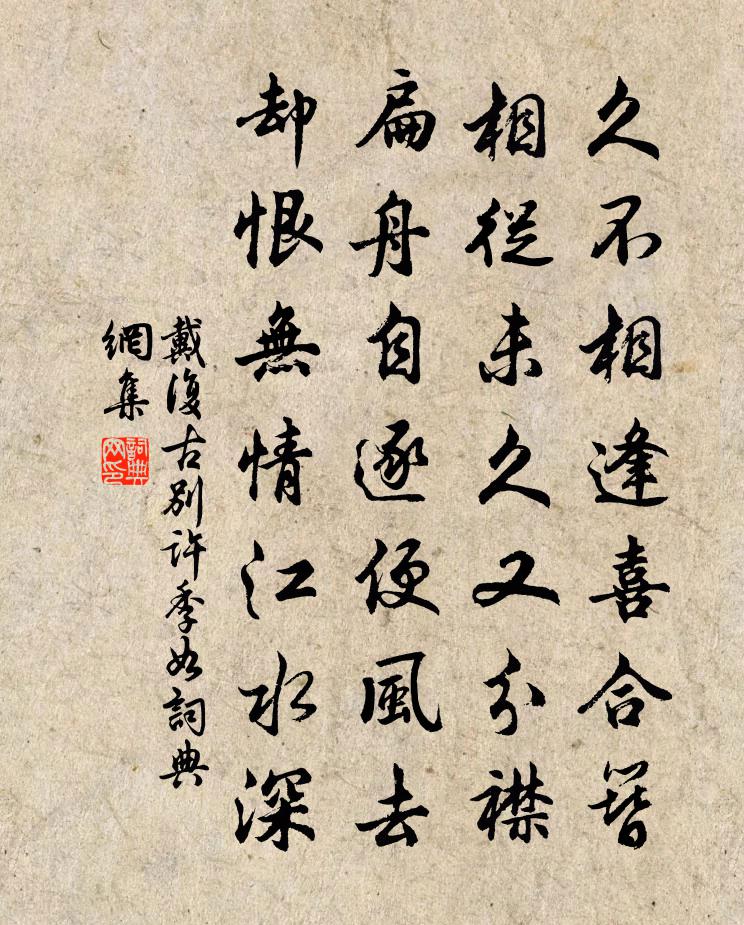 久不相逢喜合簪
相從未久又分襟
扁舟自逐便風去
却恨無情江水深
戴復古別許季如詞典
網集
詞典网印